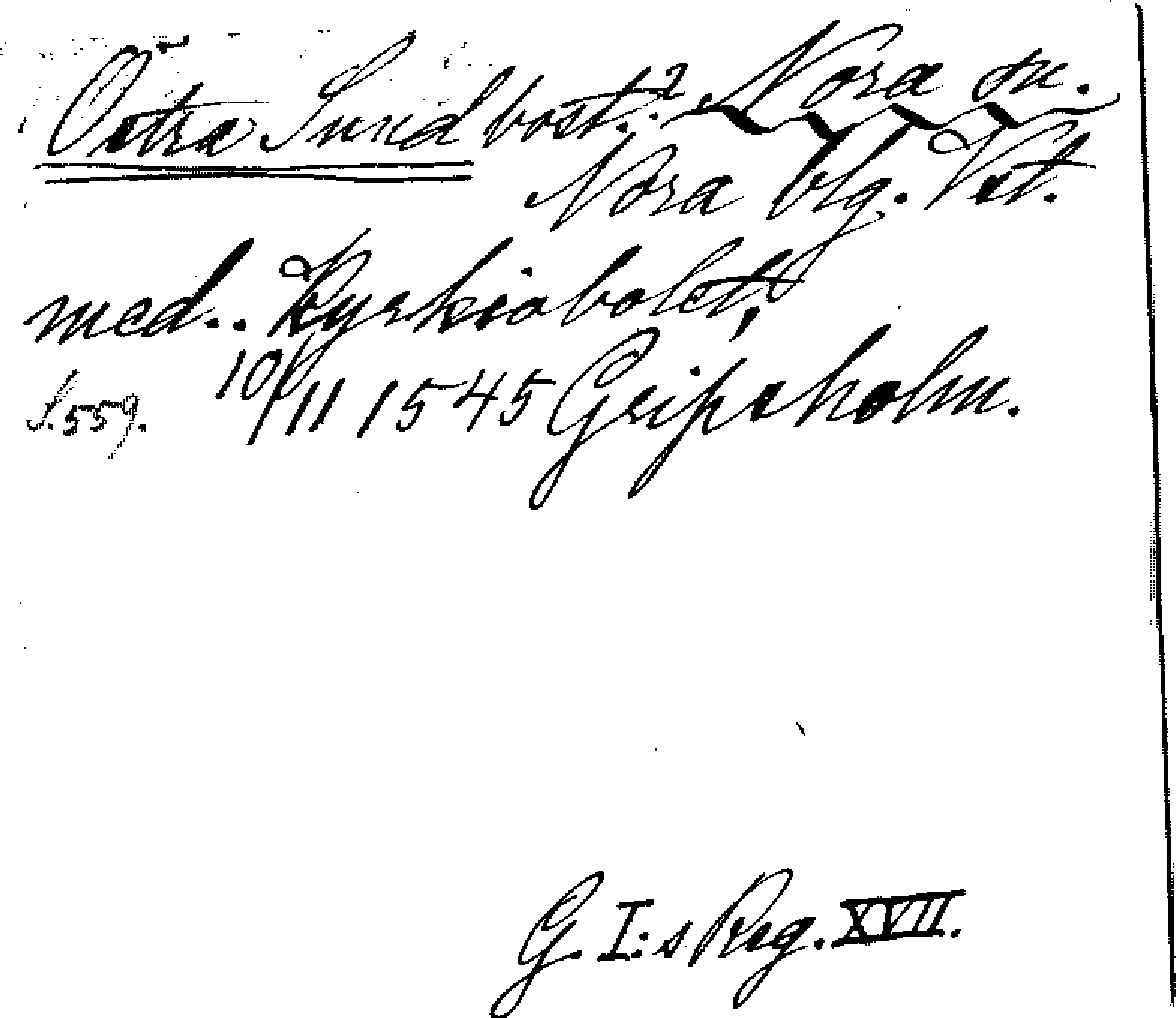 Östra Sund bost.? Nora sn.
Nora blg. Vst.
med.. Kyrkiabolet,
S. 559. 10/11 1545 Gripsholm.
G. I:s Reg. XVII.